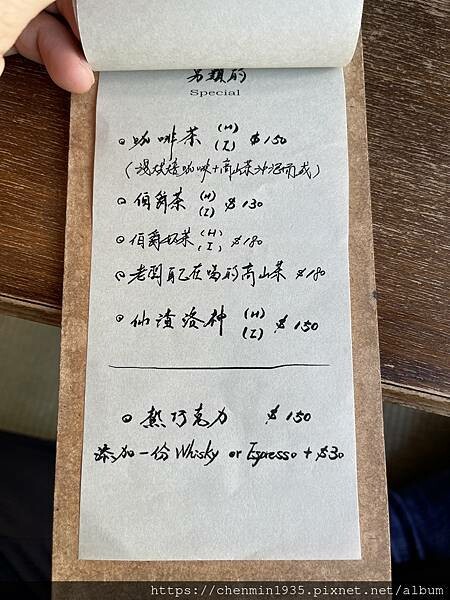 另類的
Special
咖啡茶 (H) (I) $150
(淺烘焙咖啡+高山茶沖泡而成)
伯爵茶 (H) (I) $130
伯爵奶茶 (H) (I) $180
老闆自己在喝的高山茶 $180
仙渣洛神 (H) (I) $150
熱巧克力 $150
添加一份 Whisky or Espresso + $30
https://chenmin1935.pixnet.net/album